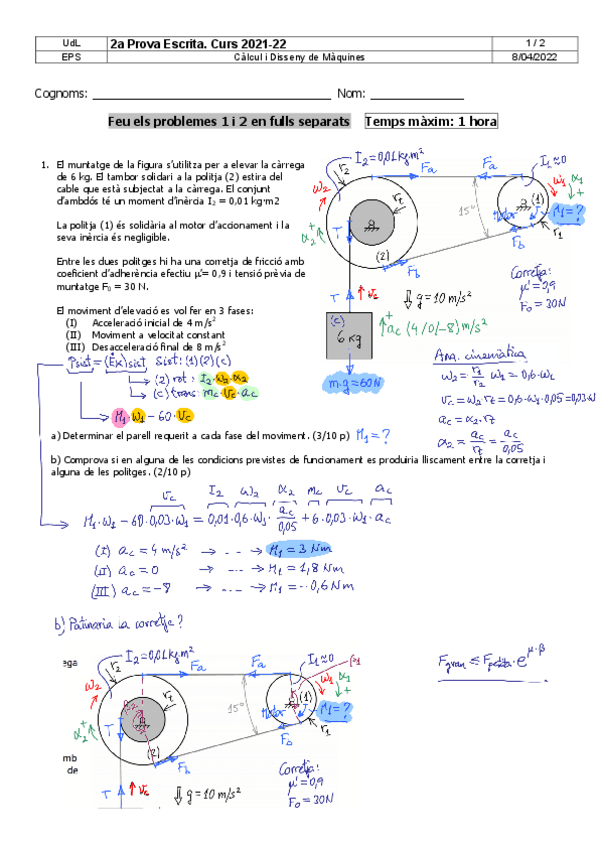 UdL
2a Prova Escrita. Curs 2021-22
1 / 2
EPS
Càlcul i Disseny de Màquines
8/04/2022
Cognoms: ____________________ Nom: ____________
Feu els problemes 1 i 2 en fulls separats Temps màxim: 1 hora
1. El muntatge de la figura s'utilitza per a elevar la càrrega
de 6 kg. El tambor solidari a la politja (2) estira del
cable que està subjectat a la càrrega. El conjunt
d'ambdós té un moment d'inèrcia I₂ = 0,01 kg·m2
La politja (1) és solidària al motor d'accionament i la
seva inèrcia és negligible.
Entre les dues politges hi ha una corretja de fricció amb
coeficient d'adherència efectiu μ'= 0,9 i tensió prèvia de
muntatge F₀ = 30 N.
El moviment d'elevació es vol fer en 3 fases:
(I) Acceleració inicial de 4 m/s²
(II) Moviment a velocitat constant
(III) Desacceleració final de 8 m/s²
I₂=0,01 kg·m²
r₂
Fa
Fa
I₁≈0
ω₂
rt
15°
(1)
ω₁
α₁
+
M₁=?
Motor
r₁
T
α₂
+
(2)
Fb
Fb
Corretja:
μ'=0,9
F₀=30N
T
vc
g=10 m/s²
(c)
6 kg
+
ac (4/0/-8) m/s²
m·g=60N
Ana. cinemàtica
ω₂=r₁/r₂ ω₁=0,6·ω₁
vc=ω₂·rt=0,6·ω₁·0,05=0,03·ω₁
ac=α₂·rt
α₂=ac/rt=ac/0,05
Psist=(Ėk)sist Sist: (1)(2)(c)
(2) rot: I₂·ω₂·α₂
(c) trans: mc·vc·ac
M₁·ω₁-60·vc
a) Determinar el parell requerit a cada fase del moviment. (3/10 p) M₁=?
b) Comprova si en alguna de les condicions previstes de funcionament es produiria lliscament entre la corretja i
alguna de les politges. (2/10 p)
vc I₂ ω₂ α₂ mc vc ac
M₁·ω₁-60·0,03·ω₁=0,01·0,6·ω₁·ac/0,05+6·0,03·ω₁·ac
(I) ac=4 m/s² → -- → M₁=3 Nm
(II) ac=0 → -- → M₁=1,8 Nm
(III) ac=-8 → -- → M₁=-0,6 Nm
b) Patinaria la corretja?
Fgran ≤ Fpetita·e^μ·β
ega
mb
de
I₂=0,01 kg·m²
r₂
Fa
Fa
I₁≈0
β₁
ω₂
rt
15°
(1)
ω₁
α₁
+
M₁=?
Motor
r₁
T
α₂
+
β₂
(2)
Fb
Fb
Corretja:
μ'=0,9
F₀=30N
T
vc
g=10 m/s²